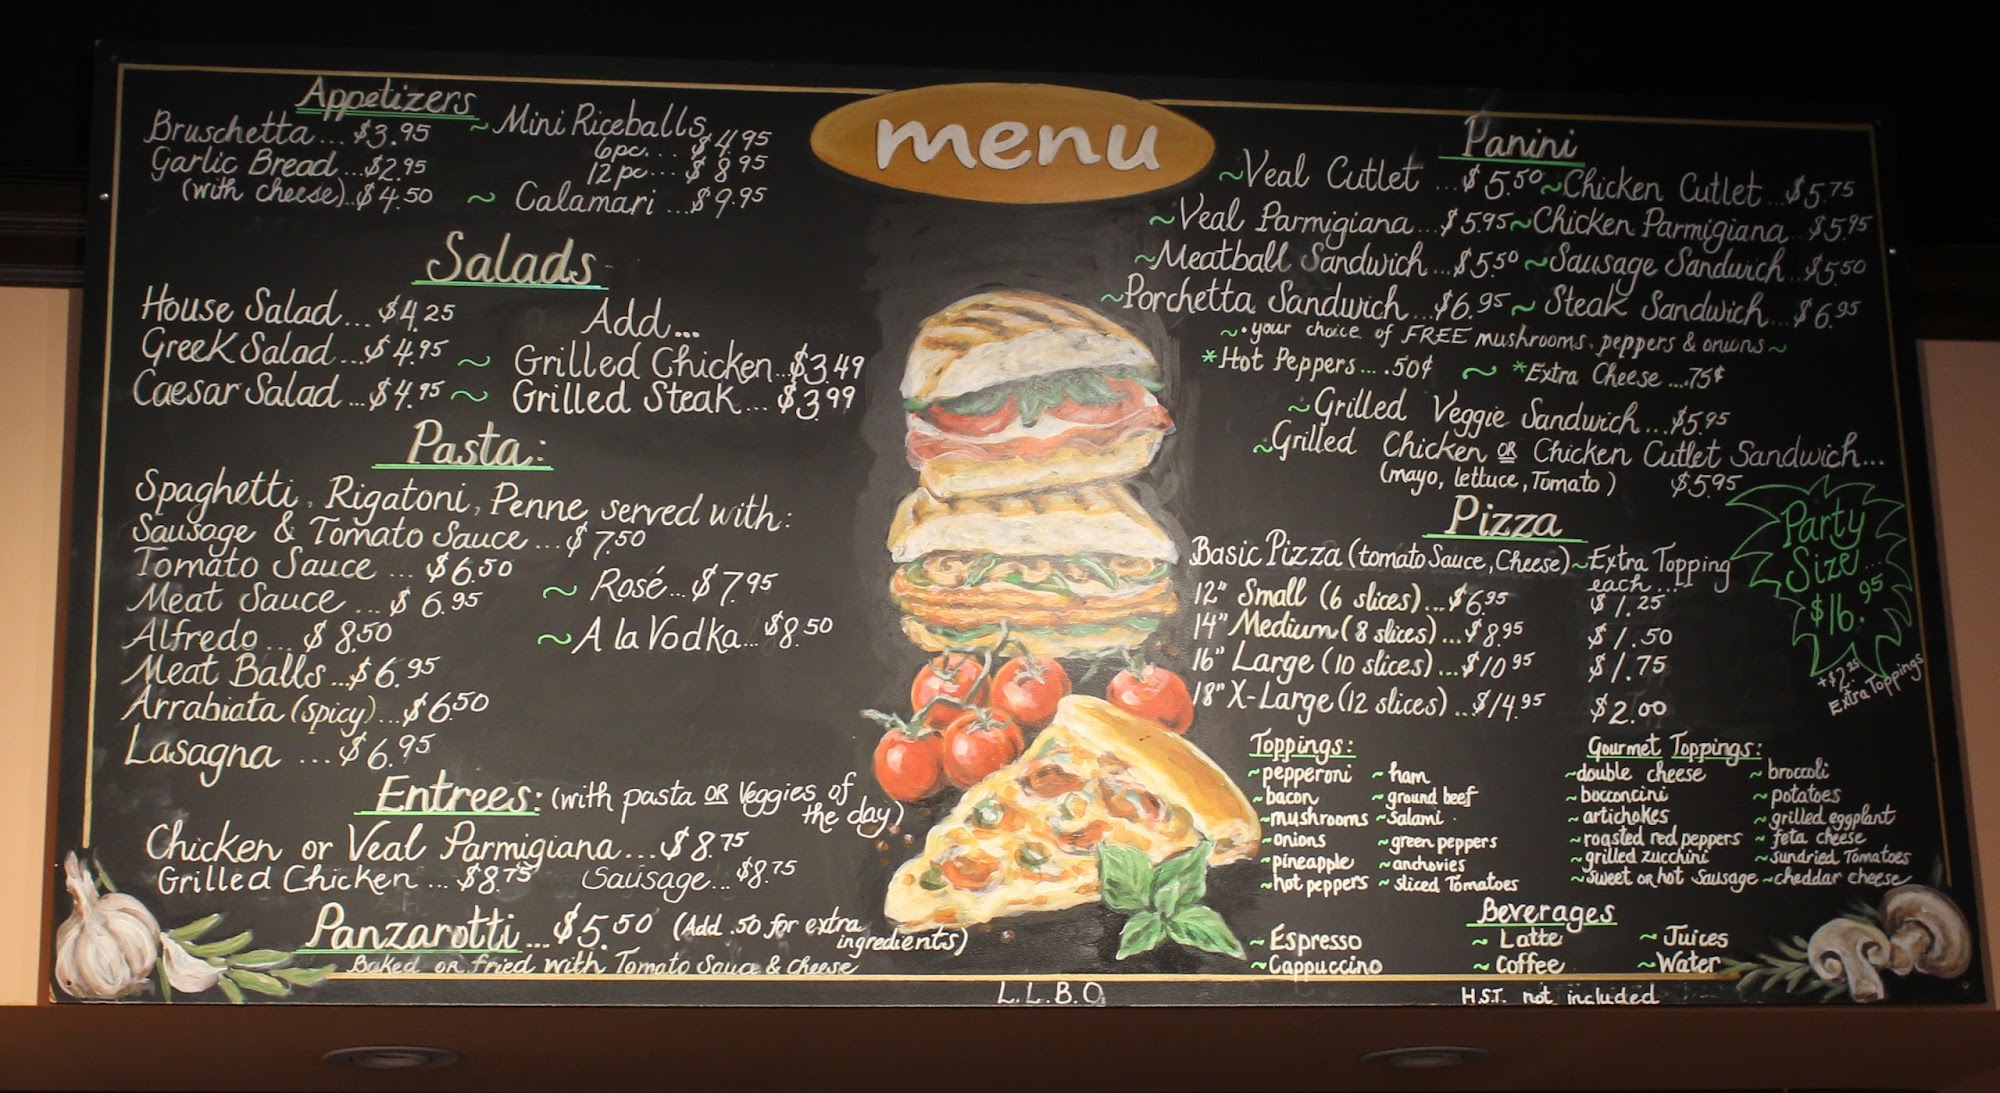 menu
Appetizers
Bruschetta... $3.95
Garlic Bread...$2.95
(with cheese)..$4.50
~ Mini Riceballs
6pc.... $4.95
12pc.... $8.95
~ Calamari ...$9.95
Salads
House Salad... $4.25
Greek Salad...$4.95 ~
Caesar Salad...$4.95 ~
Add...
Grilled Chicken...$3.49
Grilled Steak... $3.99
Pasta:
Spaghetti, Rigatoni, Penne served with:
Sausage & Tomato Sauce...$7.50
Tomato Sauce ... $6.50
Meat Sauce ... $6.95
Alfredo... $8.50
Meat Balls...$6.95
Arrabiata (spicy)...$6.50
Lasagna ...$6.95
~ Rosé...$7.95
~ A la Vodka...$8.50
Entrees: (with pasta OR Veggies of
the day)
Chicken or Veal Parmigiana...$8.75
Grilled Chicken ... $8.75 Sausage...$8.75
Panzarotti...$5.50 (Add .50 for extra
ingredients)
Baked or fried with Tomato Sauce & Cheese
Panini
~Veal Cutlet ...$5.50~Chicken Cutlet...$5.75
~Veal Parmigiana...$5.95~Chicken Parmigiana...$5.95
~Meatball Sandwich...$5.50~Sausage Sandwich...$5.50
~Porchetta Sandwich...$6.95~ Steak Sandwich...$6.95
~•your choice of FREE mushrooms, peppers & onions~
*Hot Peppers.... .50¢ ~ *Extra Cheese....75¢
~Grilled Veggie Sandwich...$5.95
~Grilled Chicken OR Chicken Cutlet Sandwich...
(mayo, lettuce, Tomato) $5.95
Pizza
Basic Pizza (tomato Sauce, Cheese)~Extra Topping
each...
12" Small (6 slices)...$6.95 $1.25
14" Medium (8 slices)...$8.95 $1.50
16" Large (10 slices)...$10.95 $1.75
18" X-Large (12 slices)...$14.95 $2.00
Party
Size...
$16.95
+$2.25
Extra Toppings
Toppings:
~pepperoni ~ham
~bacon ~ground beef
~mushrooms ~salami
~onions ~green peppers
~pineapple ~anchovies
~hot peppers ~sliced Tomatoes
Gourmet Toppings:
~double cheese ~broccoli
~bocconcini ~potatoes
~artichokes ~grilled eggplant
~roasted red peppers ~feta cheese
~grilled zucchini ~sundried Tomatoes
~sweet OR hot Sausage ~cheddar cheese
Beverages
~Espresso ~ Latte ~ Juices
~Cappuccino ~ Coffee ~Water
L.L.B.O.
H.S.T. not included